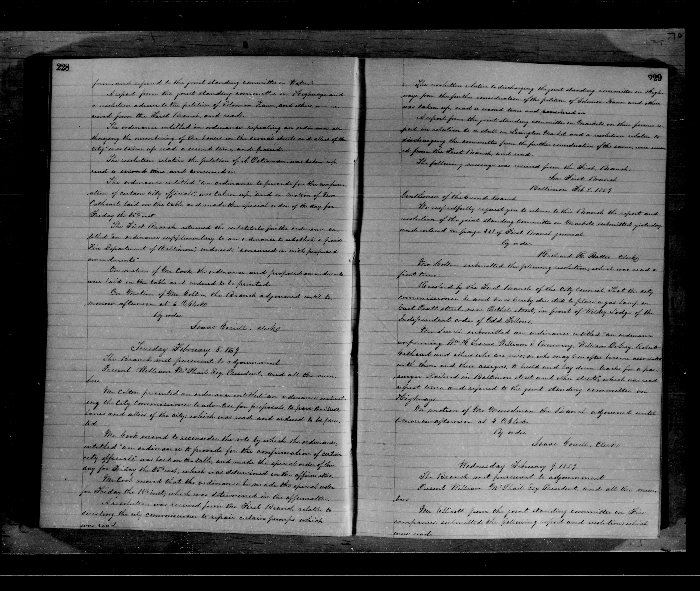 228
A report from the joint standing committee on Highways and
a resolution adverse to the petition of Solomon and others were
received from the First Branch and read.
The ordinance entitled an ordinance repealing an ordinance
changing the numbering of the houses in the streets and alleys of the
city was taken up read a second time and passed.
The resolution relative to the petition of was taken up
read a second time and concurred in
The ordinance entitled "an ordinance to provide for the confirm-
ation of certain city officials" was taken up and on motion of Mr
laid on the table and made the special order of the day for
Friday the inst
The First Branch returned the substitute for the ordinance en-
titled an ordinance supplementary to an ordinance to establish a paid
Fire Department of Baltimore endorsed, "concurred in with proposed
amendments"
On motion of Mr Cook the ordinance and proposed amendments
were laid on the table and ordered to be printed
On motion of Mr Colton the Branch adjourned until to-
morrow afternoon at 4 O'Clock
by order
Isaac Clerk
Tuesday February 8. 1859
The Branch met pursuant to adjournment
Present William McPhail Esq President, and all the mem-
bers
Mr Colton presented an ordinance entitled an ordinance
the City Commissioners to advertise for proposals to pave the
lanes and alleys of the city; which was read and ordered to be prin-
ted
Mr Cook moved to reconsider the vote by which the ordinance
entitled "an ordinance to provide for the confirmation of certain
city officials" was laid on the table, and made the special order of the
day for Friday the inst, which was determined in the affirmative.
Mr Cook moved that the ordinance be made the special order
for Friday the inst, which was determined in the affirmative.
A resolution was received from the First Branch relative to
directing the city commissioner to repair certain pumps which
was read
229
The resolution relative to discharging the joint standing committee on High-
ways from the further consideration of the petition of Solomon and others
was taken up, read a second time and concurred in
A report from the joint standing committee on Markets on their former re-
port in relation to a stall in Lexington Market and a resolution relative to
discharging the committee from the further consideration of the same, were receiv-
ed from the First Branch and read.
The following message was received from the First Branch,
In First Branch
Baltimore Feb 8. 1859
Gentlemen of the Second Branch
We respectfully request you to return to this Branch the report and
resolution of the joint standing committee on Markets submitted yesterday
and entered on page of First Branch journal
by order
Richard H. Clerk
Mr Colton submitted the following resolution, which was read a
first time.
Resolved by the First Branch of the City Council, That the city
commissioner be and he is hereby directed to place a gas lamp on
East Pratt street near street in front of Lodge of the
Independent order of Odd Fellows.
Mr submitted an ordinance entitled "an ordinance
authorizing William E. William
and others who are now, or who may hereafter become associated
with them and their assigns, to build and lay down tracks for a pas-
senger Railroad in Baltimore street and other streets; which was read
a first time and referred to the joint standing committee on
Highways
On motion of Mr the Branch adjourned until
tomorrow afternoon at 4 O'Clock
by order
Isaac Clerk
Wednesday February 9. 1859
The Branch met pursuant to adjournment
Present William McPhail Esq President and all the mem-
bers
Mr from the joint standing committee on Fire
companies submitted the following report and resolution which
was read